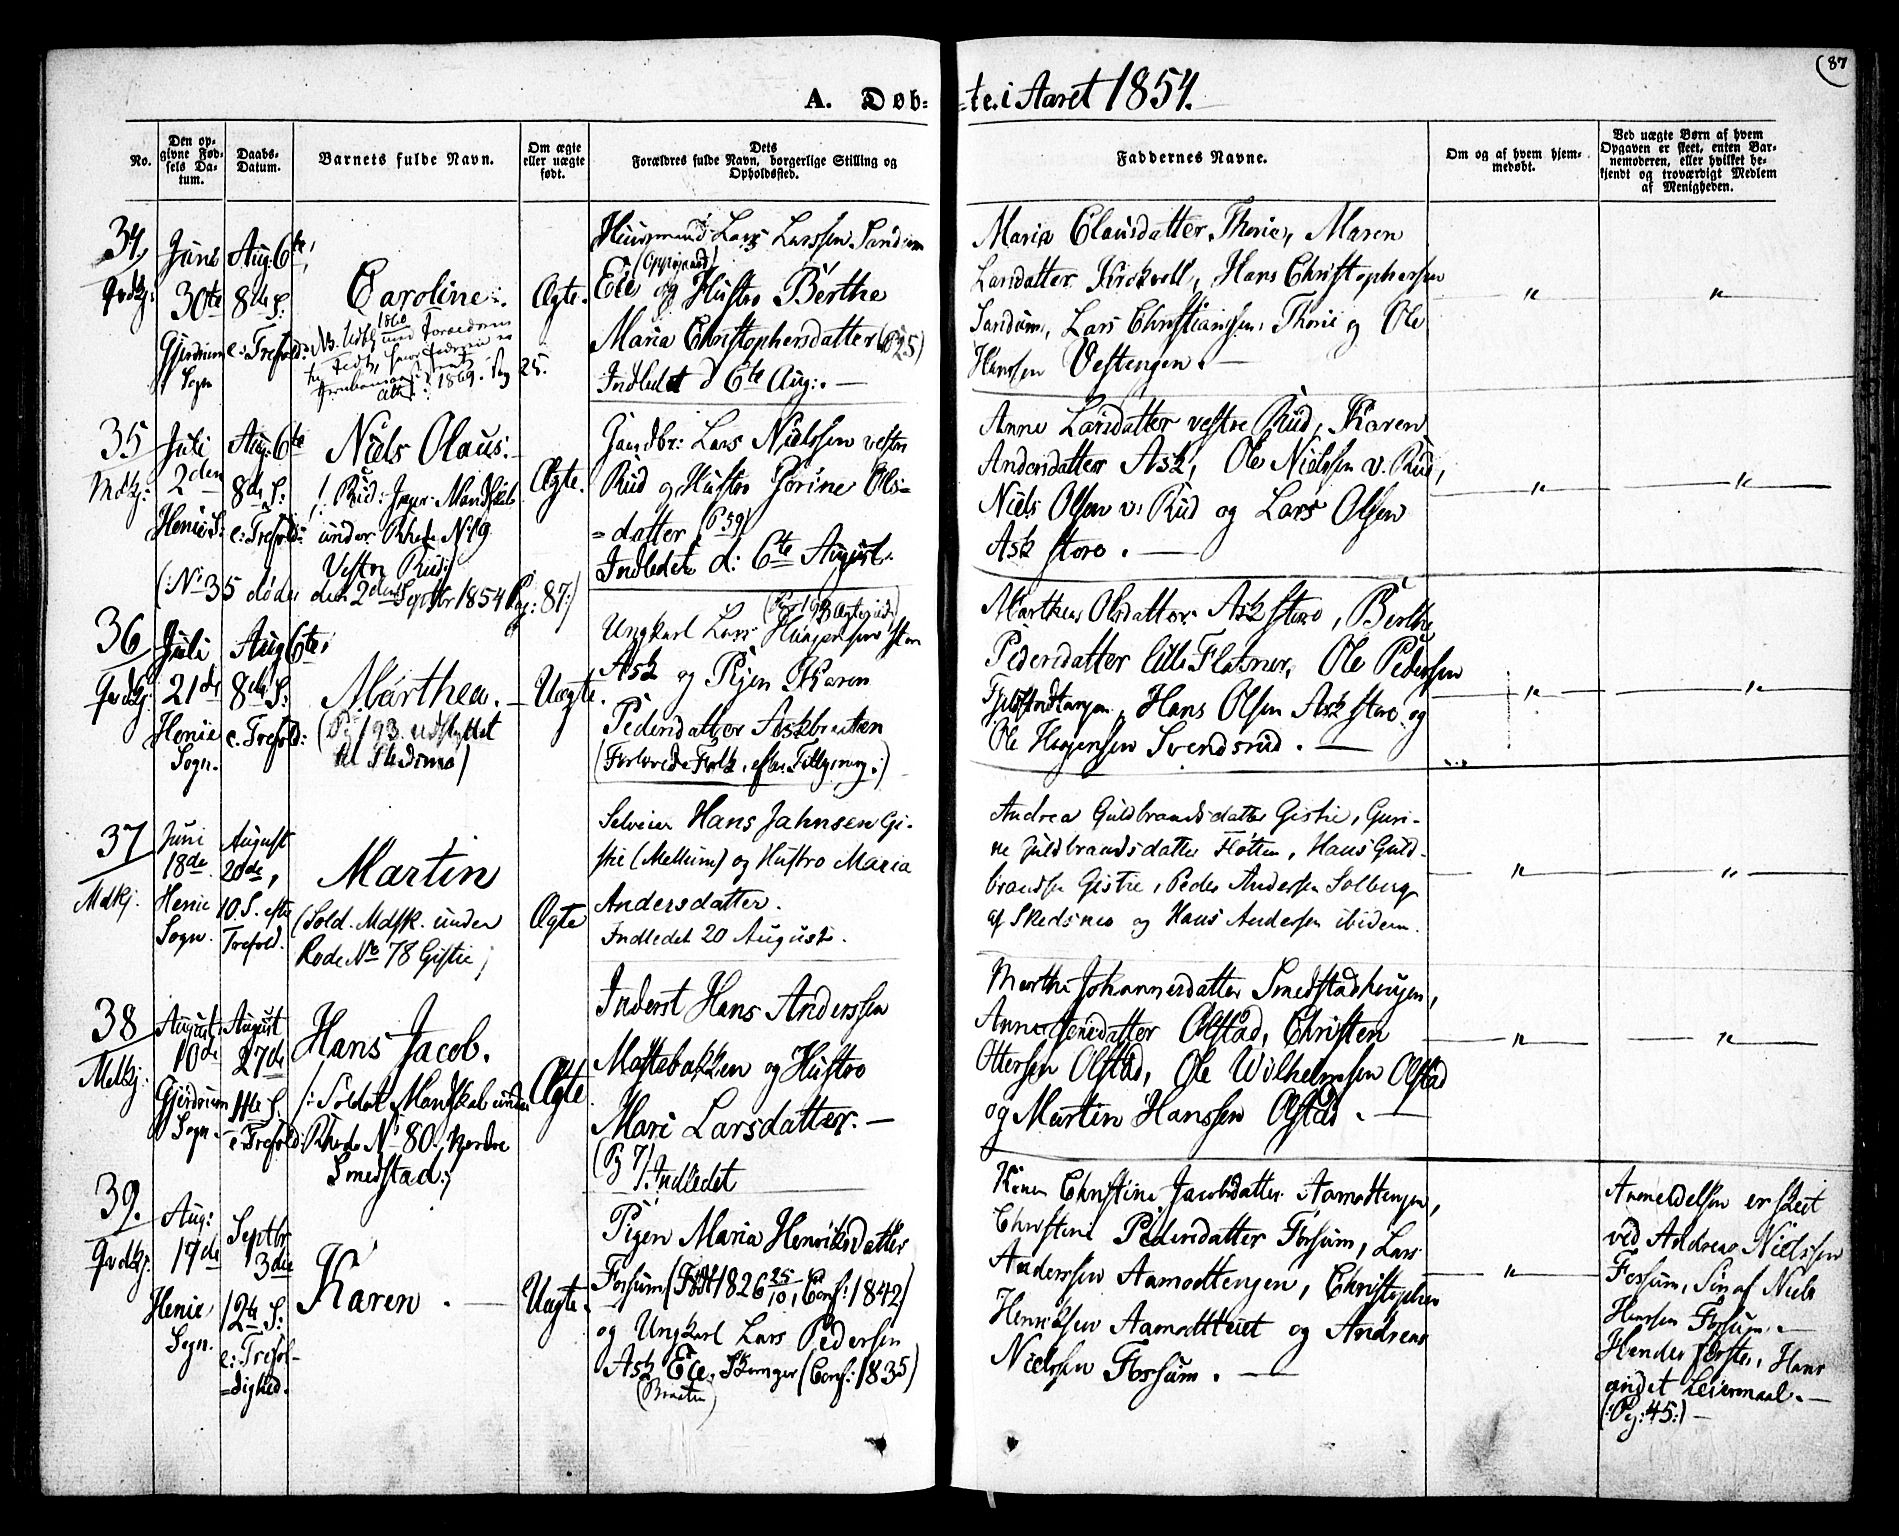 87
A. Døb-
-te. i Aaret 1854.
No.
Den op-
givne Fød-
sels Da-
tum.
Daabs-
Datum.
Barnets fulde Navn.
Om ægte
eller uægte
født.
Dets
Forældres fulde Navn, borgerlige Stilling og
Opholdssted.
Faddernes Navne.
Om og af hvem hjem-
medøbt.
Ved uægte Børn af hvem
Opgaven er skeet, enten Bar-
nemoderen, eller hvilket be-
kjendt og troværdigt Medlem
af Menigheden.
34
Qvdkj:
Juni
30te
Gjerdrum
Sogn
Aug. 6te,
8de S:
e: Trefold:
Caroline.
1860
1869. Pag 25.
Ægte.
Huusmand Lars Larssen Sandum
Eie og Hustro Berthe
Maria Christophersdatter (P 25)
Indledet d 6te Aug:. —
Maria Clausdatter Thorie, Maren
Larsdatter Kirkvold, Hans Christophersen
Sandum, Lars Christianssen Thorie og Ole
Hanssen Vestengen. —
— " —
— " —
35
Mdkj:
Juli
2den
Henie S:
Aug: 6te
8de S:
e: Trefold:
Niels Olaus.
/: Rud: Mandskab
under Rhode No 19
Vestre Rud:/
(: No 35 døde den 2den Septbr 1854 Pag: 87:)
Ægte.
Gaardbr: Lars Nielssen vestre
Rud og Hustro Jorine Ols=
=datter (P 59)
Indledet d: 6te August.
Anne Larsdatter vestre Rud, Karen
Andersdatter Ask, Ole Nielssen v. Rud,
Niels Olsen v: Rud og Lars Olsen
Ask store. —
— " —
— " —
36
Qvdkj:
Juli
21de
Henie
Sogn.
Aug 6te,
8de S:
e. Trefold:
Marthea. —
(Pg 193 udflyttet
til Skedsmo)
Uægte.
Ungkarl Lars Haagensen store
Ask og Pigen Karen
Pedersdatter Askbraaten
(Forlovede Folk, efter Tillysning:)
Marthea Olsdatter Ask store, Berthe
Pedersdatter lille Flatner, Ole Pedersen
Hans Olsen Ask store og
Ole Haagensen Svendsrud. —
— " —
— " —
37
Mdkj.
Juni
18de
Henie
Sogn.
August
20de,
10. S. efter
Trefold.
Martin
(Sold. Mdsk. under
Rode No 78 Gistie)
Ægte
Selveier Hans Jahnsen Gi-
stie (Mellum) og Hustro Maria
Andersdatter.
Indledet 20 August.
Andrea Guldbrandsdatter Gistie, Guri-
ne Guldbrandsdatter Fløtten, Hans Guld-
brandsen Gistie, Peder Andersen Solberg
af Skedsmo og Hans Andersen ibidem.
— " —
— " —
38
Mdkj:
August
10de
Gjerdrum
Sogn.
August
27de
11te S.
e: Trefold:
Hans Jacob.
/: Soldat Mandskab under
Rhode No 80. Nordre
Smedstad:/
Ægte
Inderst Hans Anderssen
Mastebakken og Hustro
Mari Larsdatter. —
(P 7). Indledet
Marthe Johannesdatter Smedstadhaugen,
Anne Jensdatter Olstad, Christen
Ottersen Olstad, Ole Wilhelmsen Olstad
og Martin Hanssen Olstad. —
— " —
— " —
39.
Qvdkj.
Aug:
17de
Henie
Sogn.
Septbr
3die
12te S:
e: Trefol-
=dighed.
Karen. —
Uægte.
Pigen Maria Henriksdatter
Fossum (Født 1826 25/10, Conf: 1842)
og Ungkarl Lars Pedersen
Ask Eie, (Conf: 1835)
(Braaten)
Karen Christine Jacobsdatter Aamodtengen,
Christine Pedersdatter Fossum, Lars
Anderssen Aamodtengen, Christopher
Henriksen Aamodtteiet og Andreas
Nielssen Fossum. —
— " —
Anmeldelsen er skeet
ved Andreas Nielssen
Fossum, Søn af Niels
Hanssen Fossum. —
Hendes første, Hans
andet Leiermaal. —
(: Pg: 45:) —